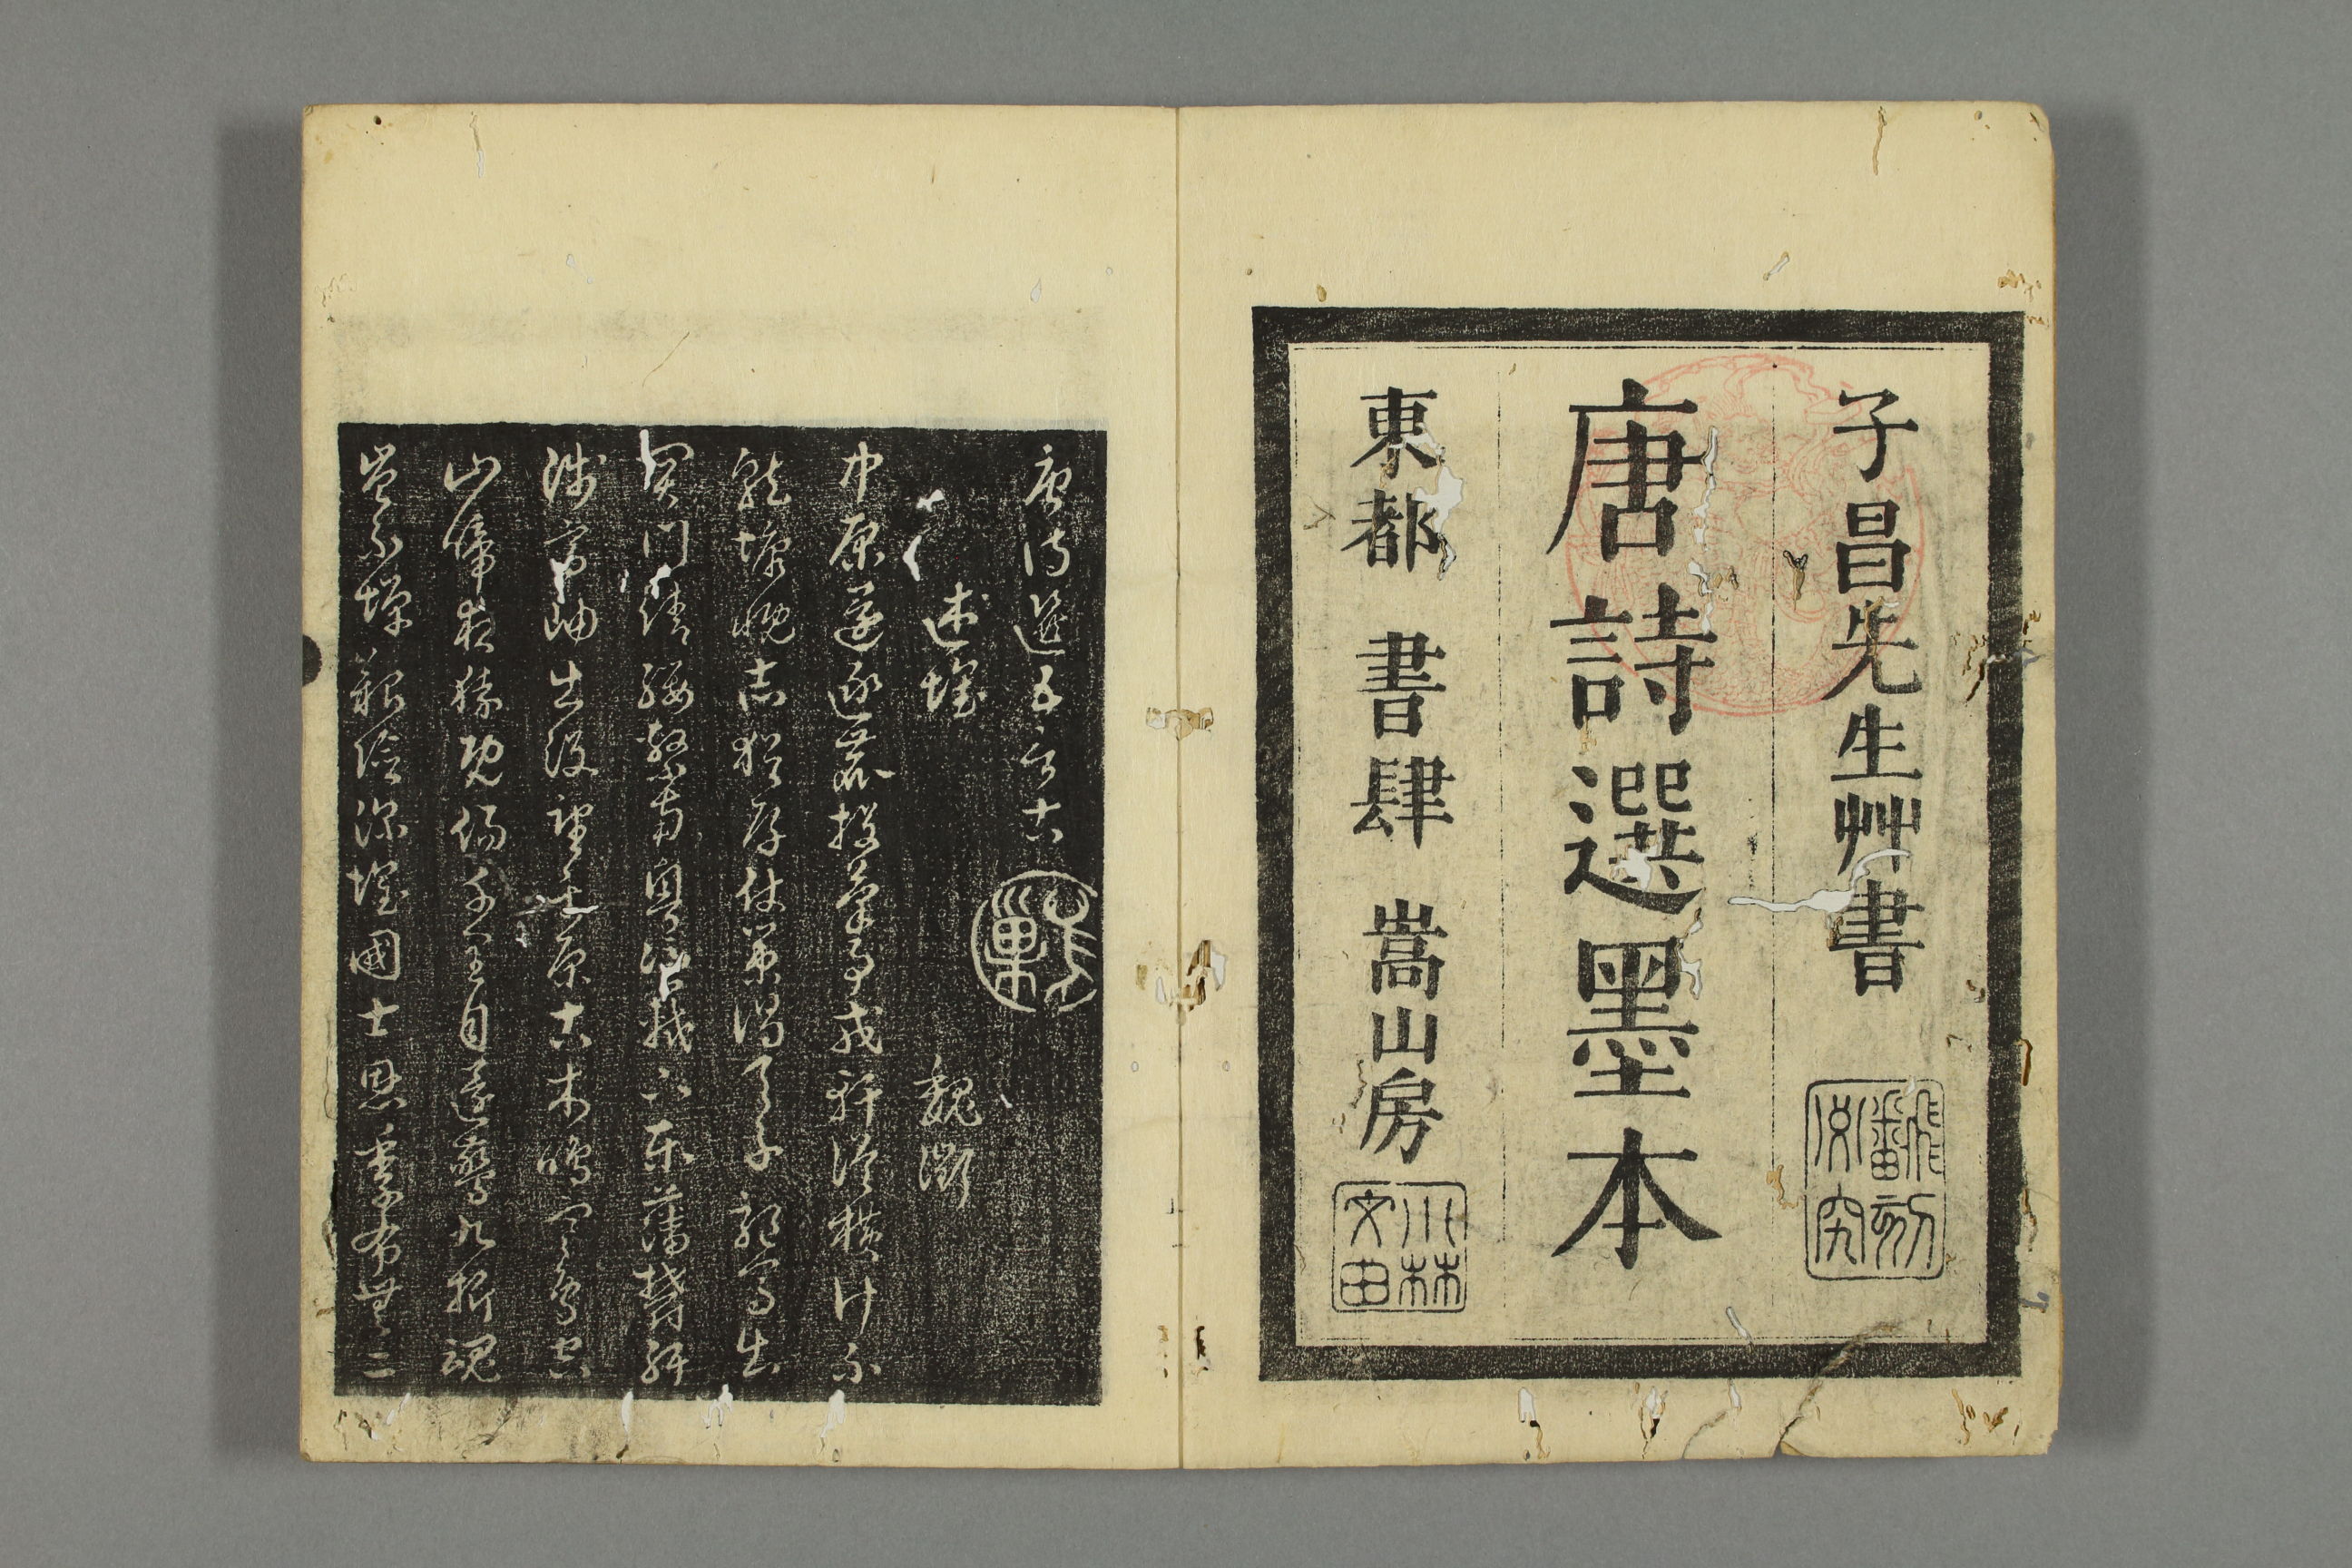 子昌先生艸書
飜刻必究
唐詩選墨本
東都 書肆 嵩山房
小林文由
唐詩選五言古
述懷 魏徵
中原還逐鹿投筆事戎軒縱橫計不
就慷慨志猶存仗策謁天子驅馬出
關門請纓繫南粵憑軾下東藩鬱紆
陟高岫出沒望平原古木鳴寒鳥空
山啼夜猿既傷千里目還驚九折魂
豈不憚艱險深懷國士恩季布無二